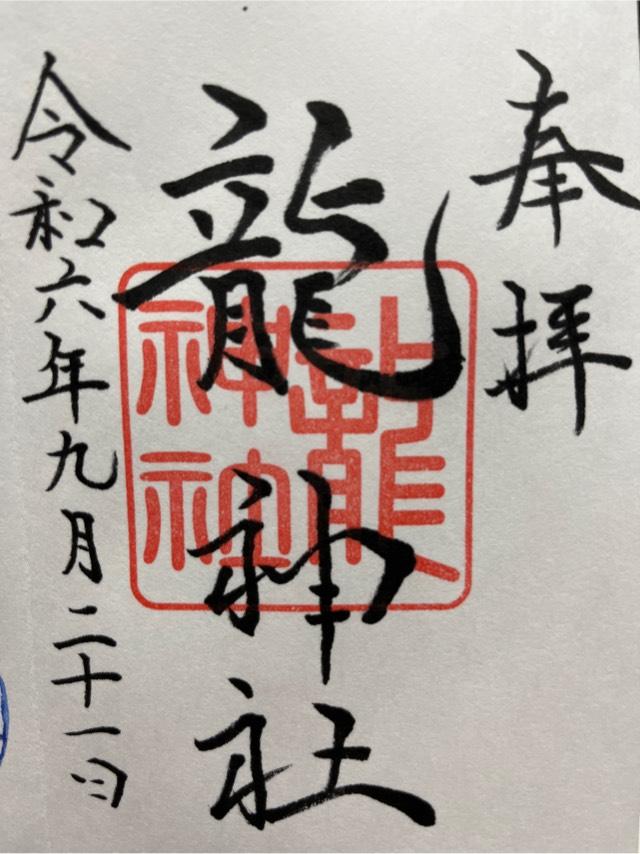 奉拝
龍神社
龍神社
令和六年九月二十一日